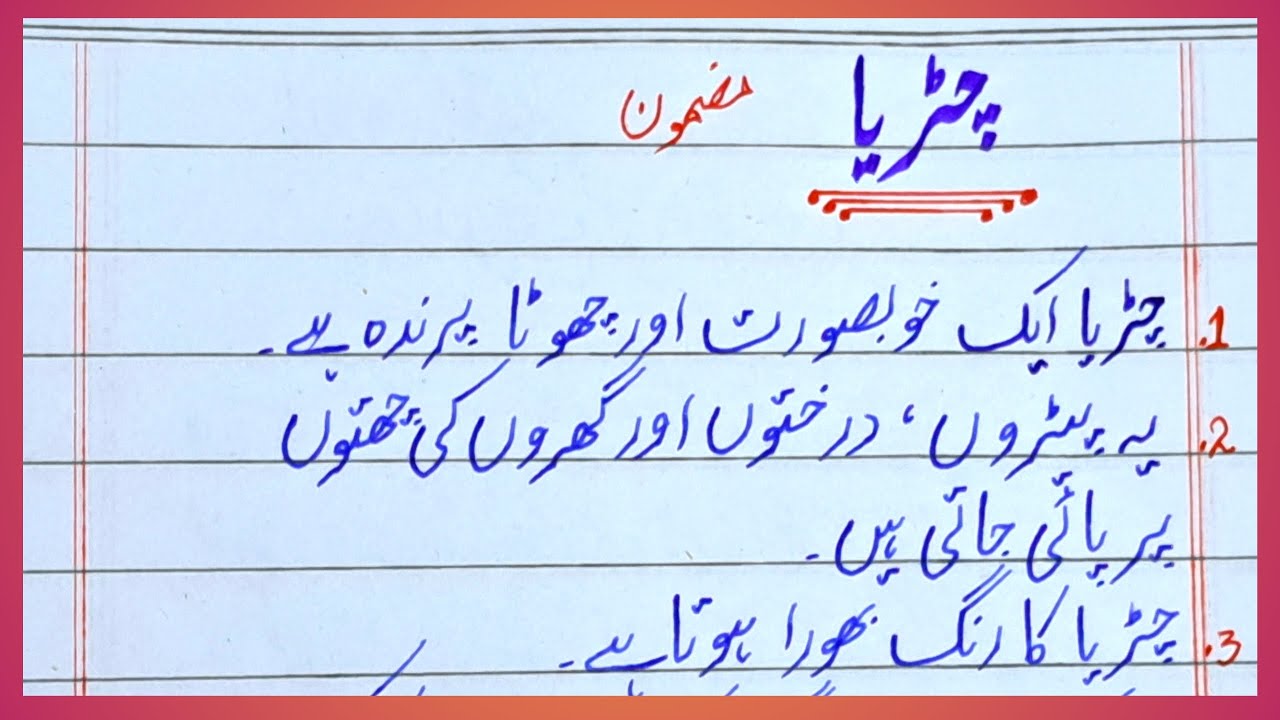 چڑیا مضمون
1. چڑیا ایک خوبصورت اور چھوٹا پرندہ ہے۔
2. یہ پیڑوں، درختوں اور گھروں کی چھتوں
پر پائی جاتی ہیں۔
3. چڑیا کا رنگ بھورا ہوتا ہے۔